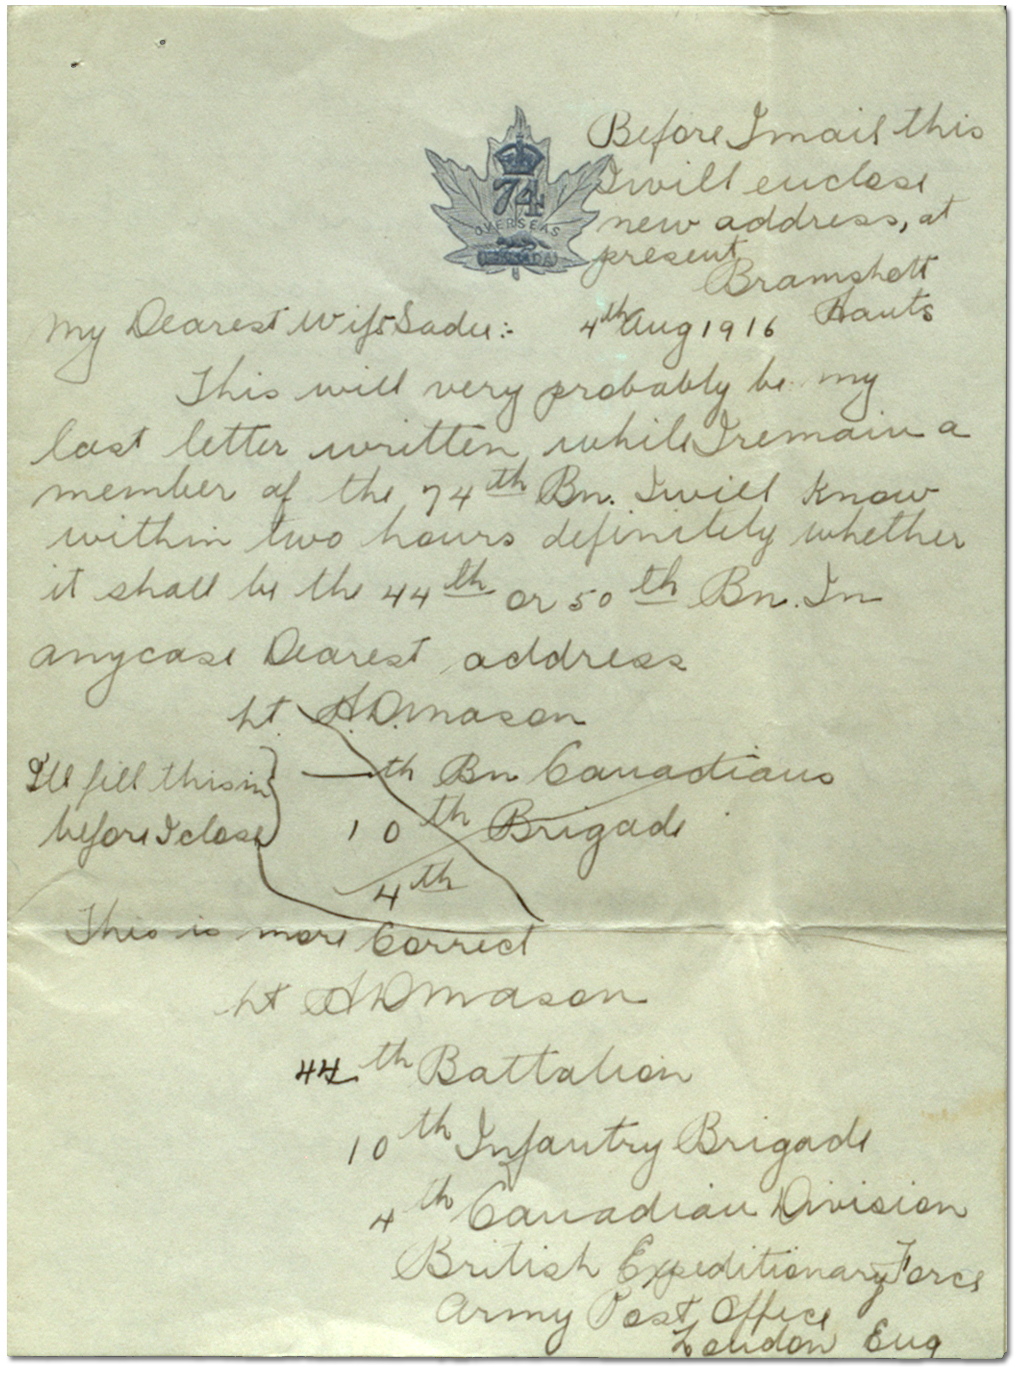 Before I mail this
I will enclose
new address, at
present
74
OVERSEAS
CANADA
Bramshott
Hants
4th Aug 1916
My Dearest Wife Sadie:-
This will very probably be my
last letter written while I remain a
member of the 74th Bn. I will know
within two hours definitely whether
it shall be the 44th or 50th Bn. In
anycase Dearest address
Lt. A.D. Mason
I'll fill this in
before I close
—th Bn Canadians
10th Brigade
4th
This is more Correct
Lt A D Mason
44th Battalion
10th Infantry Brigade
4th Canadian Division
British Expeditionary Force
Army Post Office
London Eng